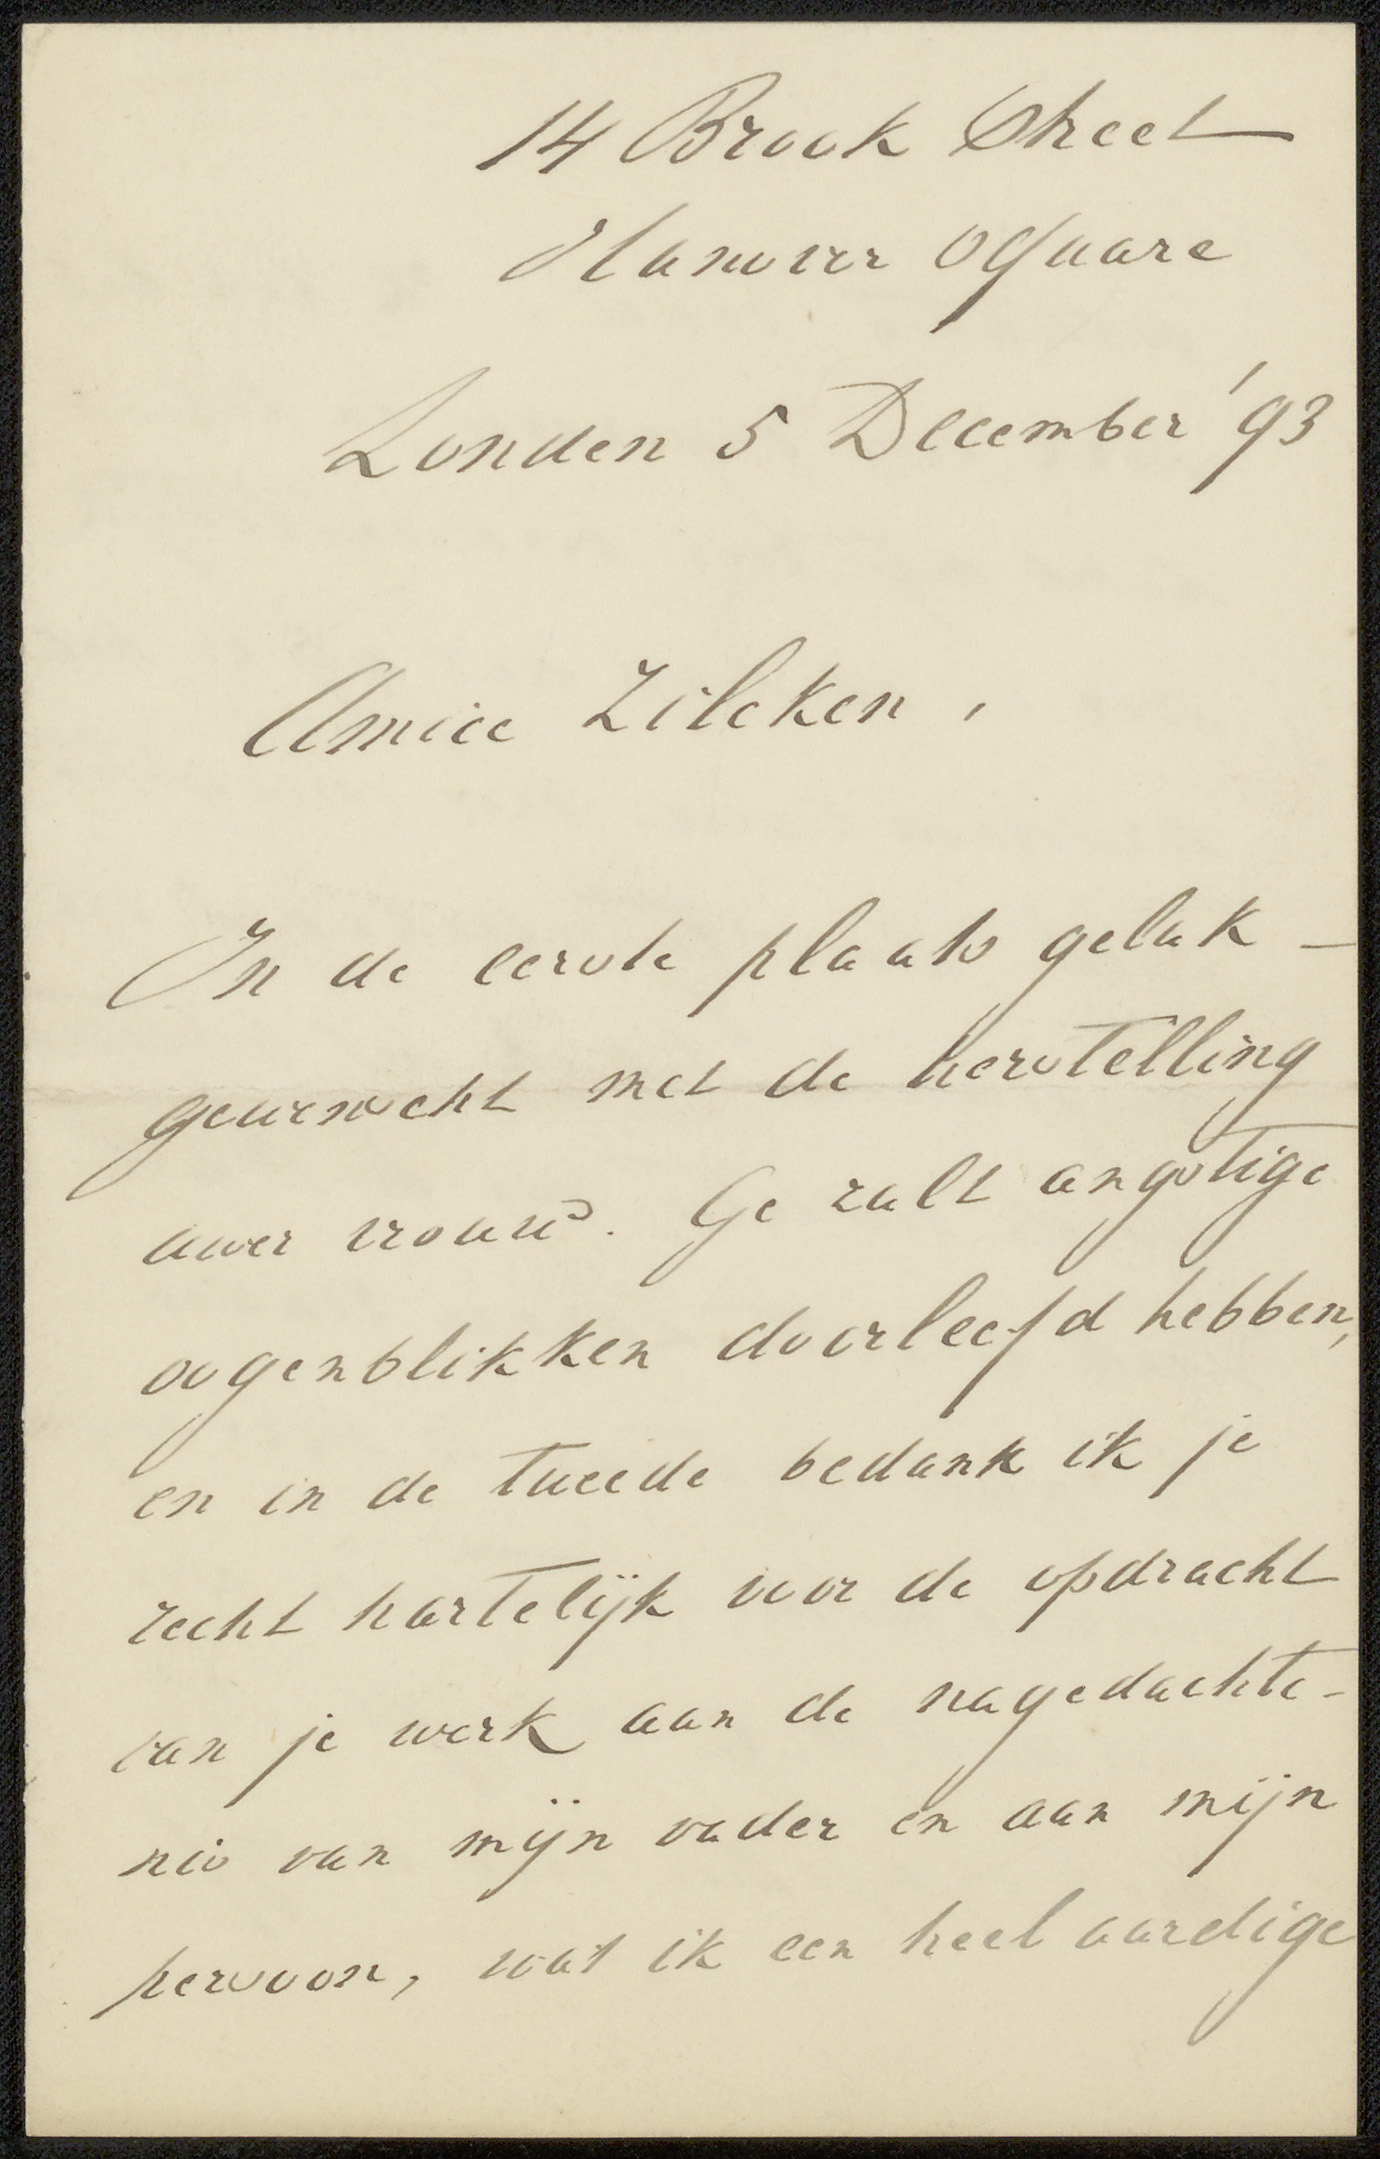 14 Brook Street
Hanover Square
Londen 5 December '93
Amice Zilcken,
In de eerste plaats geluk-
gewenscht met de herstelling
uwer vrouw. Ge zult angstige
oogenblikken doorleefd hebben,
en in de tweede bedank ik je
recht hartelijk voor de opdracht
van je werk aan de nagedachte-
nis van mijn vader en aan mijn
persoon, wat ik een heel aardige